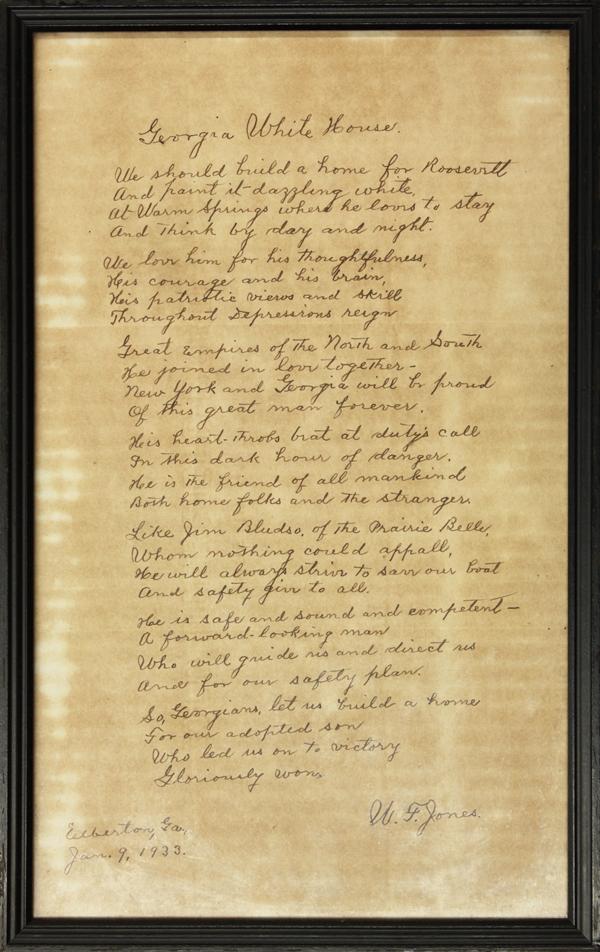 Georgia White House.
We should build a home for Roosevelt
And paint it dazzling white,
At Warm Springs where he loves to stay
And think by day and night.
We love him for his thoughtfulness,
His courage and his brain,
His patriotic views and skill
Throughout Depressions reign
Great Empires of the North and South
He joined in love together-
New York and Georgia will be proud
Of this great man forever.
His heart-throbs beat at duty's call
In this dark hour of danger.
He is the friend of all mankind
Both home folks and the stranger.
Like Jim Bludso, of the Prairie Belle,
Whom nothing could appall,
He will always strive to save our boat
And safety give to all.
He is safe and sound and competent-
A forward-looking man
Who will guide us and direct us
And for our safety plan.
So, Georgians, let us build a home
For our adopted son
Who led us on to victory
Gloriously won.
W. F. Jones.
Elberton, Ga.,
Jan. 9, 1933.